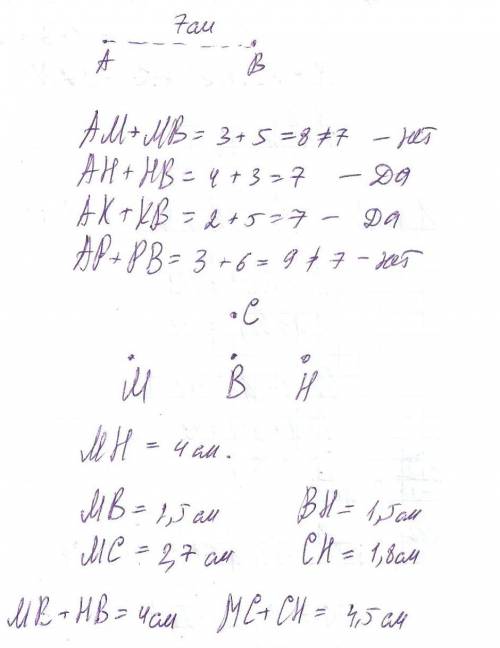 7см
A B
AM+MB= 3+5=8≠7 – нет
AH+HB= 4+3=7 – Да
AK+KB=2+5=7 – Да
AP+PB= 3+6=9≠7 – нет
.C
M B H
MH = 4см.
MB = 2,5см BH= 1,5см
MC = 2,7 см CH = 1,8см
MB+HB= 4см MC+CH= 4,5см